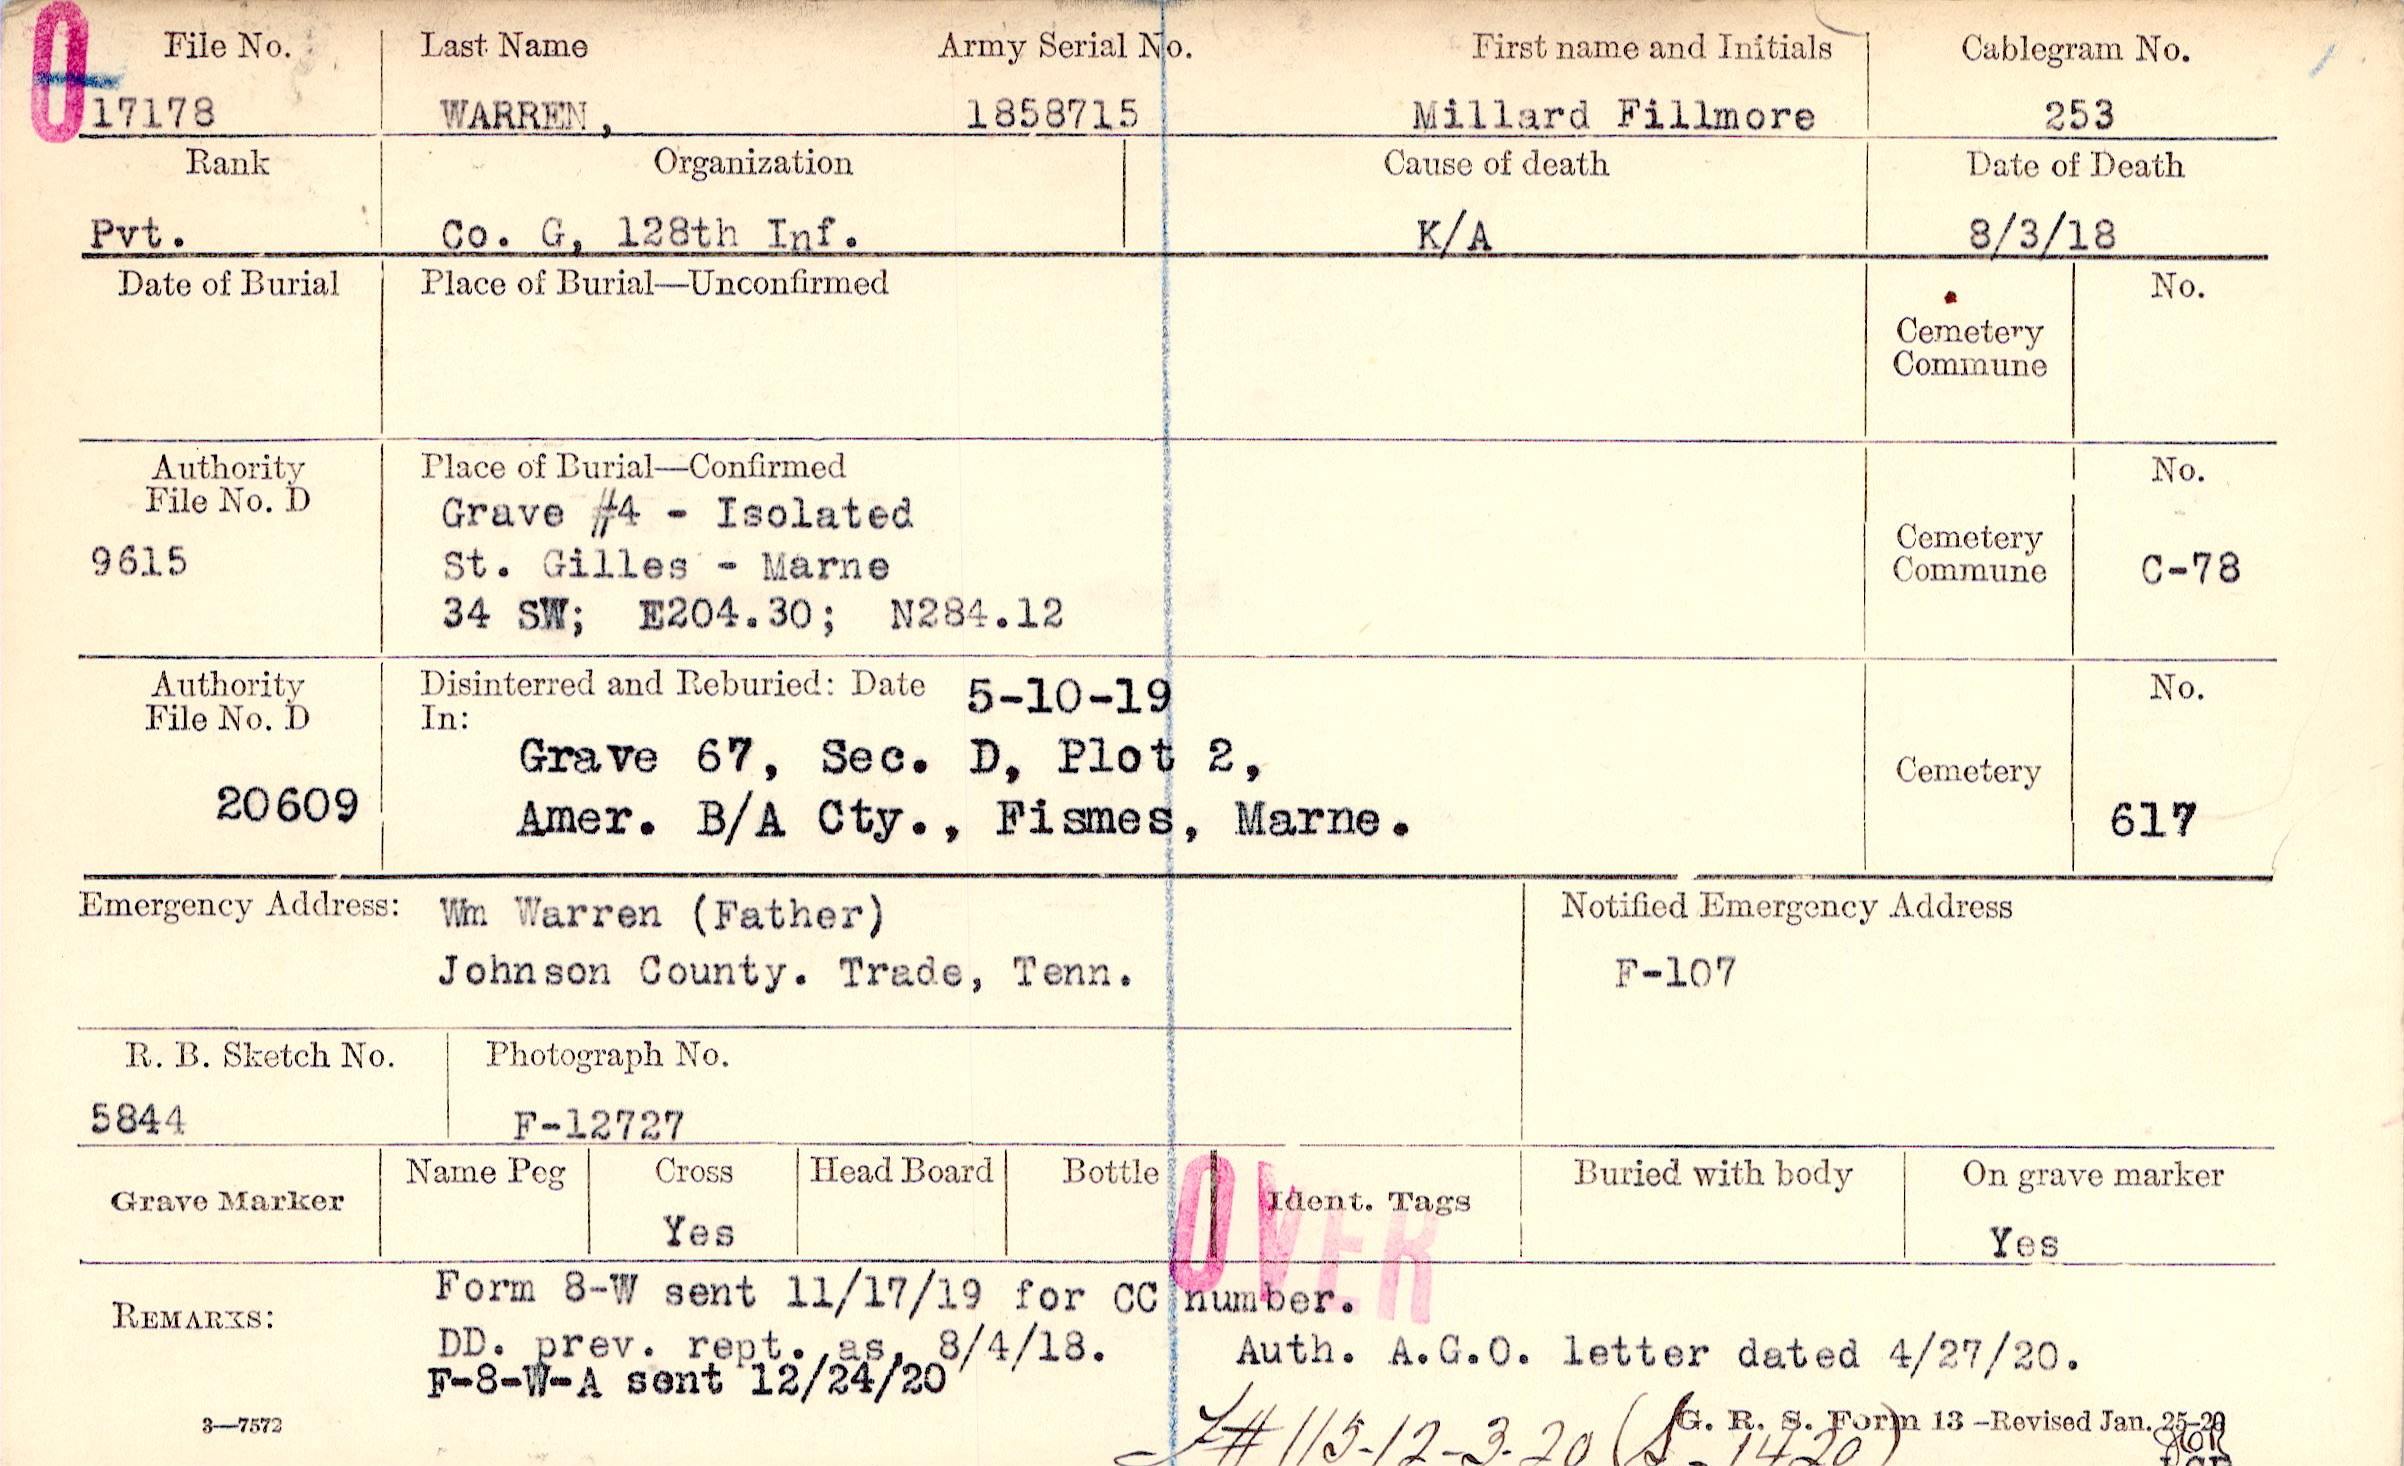 File No. Last Name Army Serial No. First name and Initials Cablegram No.
17178 WARREN, 1858715 Millard Fillmore 253
Rank Organization Cause of death Date of Death
Pvt. Co. G, 128th Inf. K/A 8/3/18
Date of Burial Place of Burial—Unconfirmed No.
Cemetery
Commune
Authority Place of Burial—Confirmed No.
File No. D
Grave #4 - Isolated
9615 St. Gilles - Marne
Cemetery
Commune C-78
34 SW; E204.30; N284.12
Authority Disinterred and Reburied: Date 5-10-19 No.
File No. D In:
Grave 67, Sec. D, Plot 2,
Cemetery
20609 Amer. B/A Cty., Fismes, Marne. 617
Emergency Address: Wm Warren (Father) Notified Emergency Address
Johnson County. Trade, Tenn. F-107
R. B. Sketch No. Photograph No.
5844 F-12727
Grave Marker Name Peg Cross Head Board Bottle Ident. Tags Buried with body On grave marker
Yes Yes
OVER
Form 8-W sent 11/17/19 for CC number.
REMARKS:
DD. prev. rept. as, 8/4/18. Auth. A.G.O. letter dated 4/27/20.
F-8-W-A sent 12/24/20
3—7572 G. R. S. Form 13 -Revised Jan. 25-20
#115-12-3-20